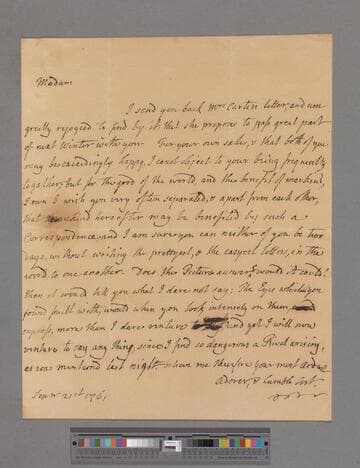 Madam
I send you back Mrs Carters letter, and am
greatly rejoyced to find by it, that she proposes to pass great part
of next Winter with you. For your own sakes, & that both of you
may be exceedingly happy, I canot object to your being frequently
together, but for the good of the world, and the benefit of mankind,
I own I wish you very often separated, & apart from each other,
that mankind hereafter may be benefited by such a
Correspondence and I am sure you can neither of you be two
days, without writing the prettyest, & the easyest letters, in the
world, to one another. Does the Picture answer, would it could!
then it would tell you what I dare not say; The Eyes which you
find fault with, would when you look intensely on them,
express, more than I dare venture and yet I will now
venture to say any thing, since I find so dangerous a Rival arising,
as was mentiond last night. believe me therefore your most ardent
Adorer, & humble Servt.
21st 176